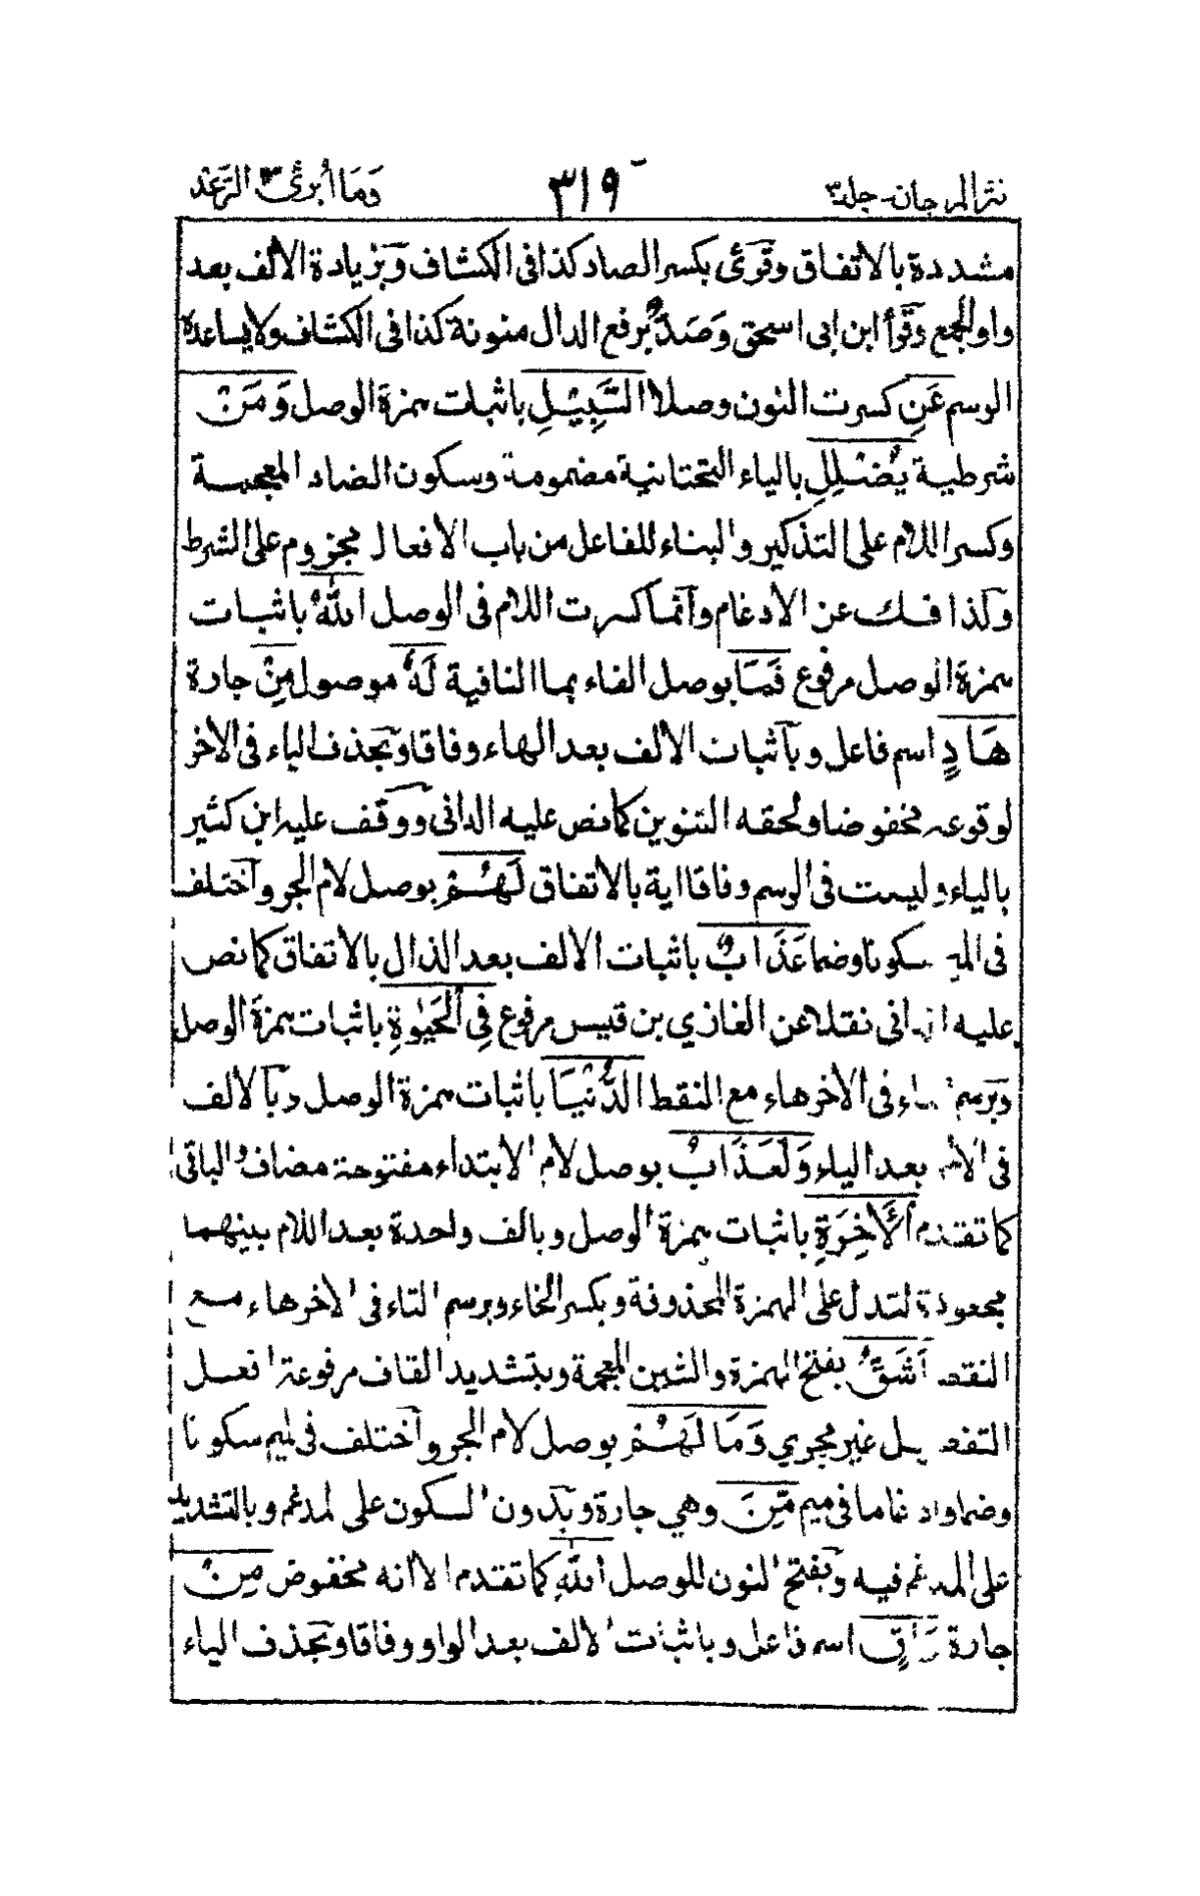 نثر المرجان - جلد ٣
٣١٩
وَمَا أُبَرِّئُ ١٣ الرَّعْد
مشددة بالاتفاق وقرئ بكسر الصاد كذا فى الكشاف وبزيادة الالف بعد
واو الجمع وقرأ ابن ابى اسحق وَصَدٌّ برفع الدال منونة كذا فى الكشاف ولا يساعدة
الرسم عَنِ كسرت النون وصلا السَّبِيْلِ باثبات همزة الوصل وَمَنْ
شرطية يُضْلِلِ بالياء التحتانية مضمومة وسكون الضاد المعجمة
وكسر اللام على التذكير والبناء للفاعل من باب الافعال مجزوم على الشرط
وكذا فك عن الادغام وانما كسرت اللام فى الوصل اللهُ باثبات
همزة الوصل مرفوع فَمَا بوصل الفاء بما النافية لَهُ موصول مِنْ جارة
هَادٍ اسم فاعل وباثبات الالف بعد الهاء وفاقا وبحذف الياء فى الاخر
لوقوعه مخفوضا ولحقه التنوين كما نص عليه الدانى ووقف عليه ابن كثير
بالياء وليست فى الرسم وفاقا اية بالاتفاق لَهُمْ بوصل لام الجر واختلف
فى الميم سكونا وضما عَذَابٌ باثبات الالف بعد الذال بالاتفاق كما نص
عليه الدانى نقلا عن الغازي بن قيس مرفوع فِي الْحَيٰوةِ باثبات همزة الوصل
وبرسم التاء فى الاخر هاء مع النقط الدُّنْيَا باثبات همزة الوصل وبالالف
فى الاخر بعد الياء وَلَعَذَابُ بوصل لام الابتداء مفتوحة مضاف والباقى
كما تقدم الْاٰخِرَةِ باثبات همزة الوصل وبالف واحدة بعد اللام بينهما
مجعودة لتدل على الهمزة المحذوفة وبكسر الخاء وبرسم التاء فى الاخر هاء مع
النقط اَشَقُّ بفتح الهمزة والشين المعجمة وبتشديد القاف مرفوعة افعل
التفضيل غير مجري وَمَا لَهُمْ بوصل لام الجر واختلف فى الميم سكونا
وضما وادغاما فى ميم مِّنَ وهي جارة وبدون السكون على المدغم وبالتشديد
على المدغم فيه وبفتح النون للوصل اللهِ كما تقدم الا انه مخفوض مِنْ
جارة وَاقٍ اسم فاعل وباثبات الالف بعد الواو وفاقا وبحذف الياء